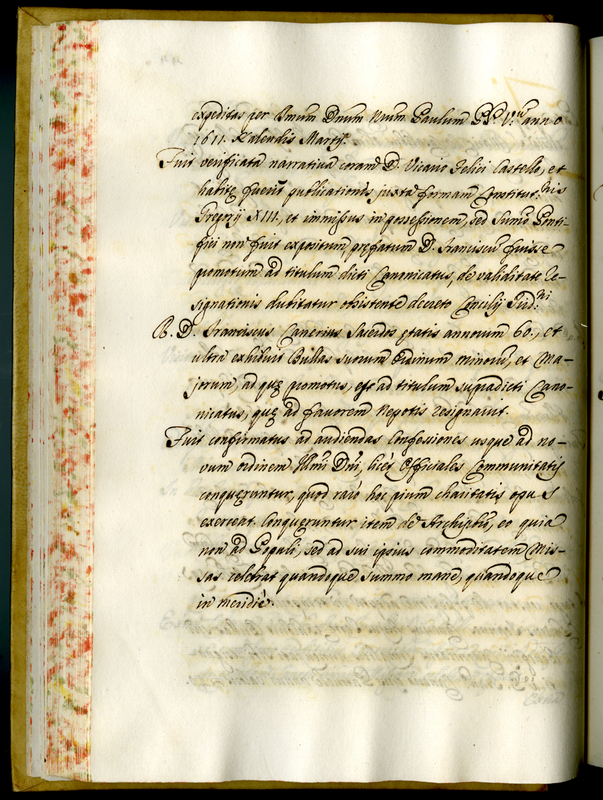 expeditas per Smum Dnum Nrum Paulum PP. V.tu anno
1611. Kalendis Martij.
Fuit verificata narrativa coram D. Vicario Felici Castello, et
habitę fuerut publicationes juxta formam Constitut.nis
Gregorij XIII., et immissus in possessionem, sed Sumo Ponti-
fici non fuit expositum, pręfatum D. Franciscu fuisse
promotum ad titulum dicti Canonicatus, de validitate Re-
signationis dubitatur obstante decreto Concilij Trid.ni
R. D. Franciscus Canerius Sacerdos ętatis annorum 60., et
ultra exhibuit Bullas suorum Ordinum minoru, et Ma-
jorum, ad quę promotus, est ad titulum supradicti Cano-
nicatus, quę ad favorem Nepotis resignavit.
Fuit confirmatus ad audiendas Confessiones usque ad no-
vum ordinem Illmi Dni, licet Officiales Communitatis
conquerantur, quod raro hoc pium charitatis opus
exerceat. Conqueruntur item de Archipbro, eo quia
non ad Populi, sed ad sui ipsius commoditatem Mis-
sas celebrat quandoque summo mane, quandoque
in meridie.